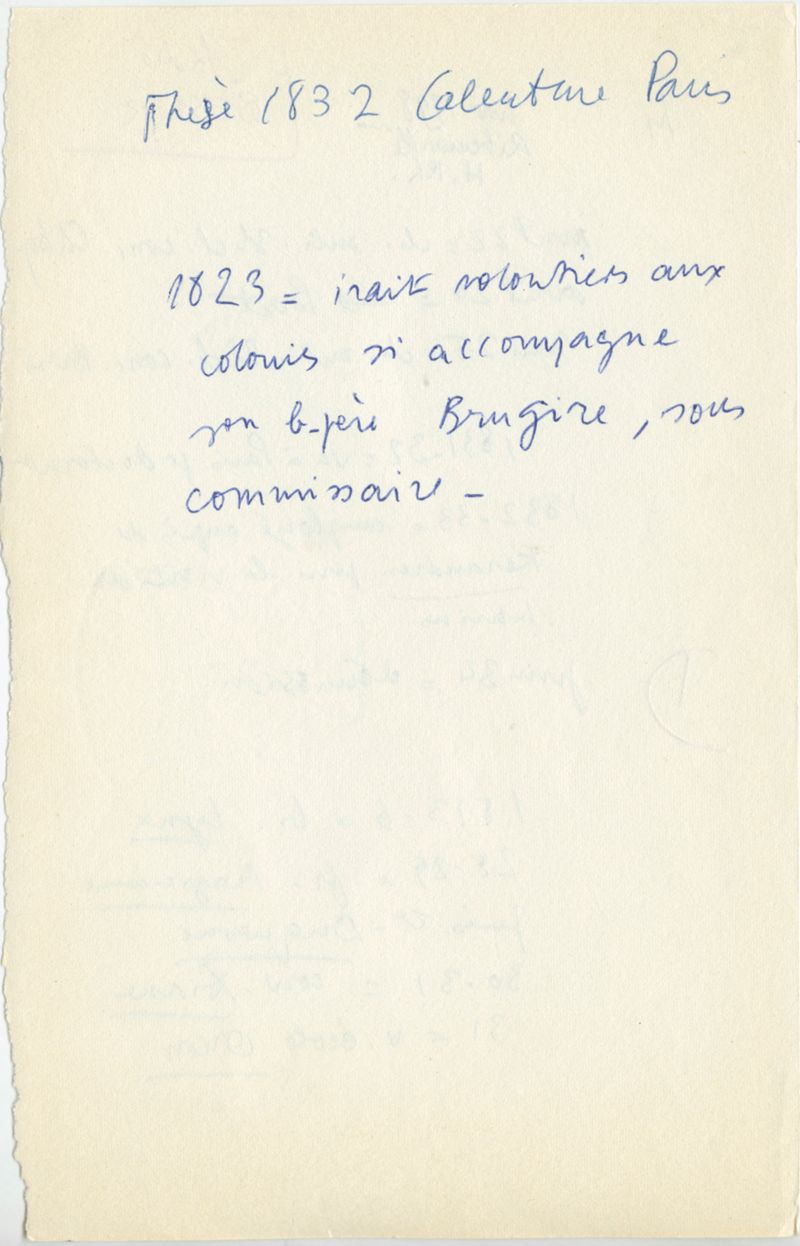 Thèse 1832 Calenture Paris
1823 = irait volontiers aux
colonies si accompagne
son b-père Brugire, sous
commissaire -